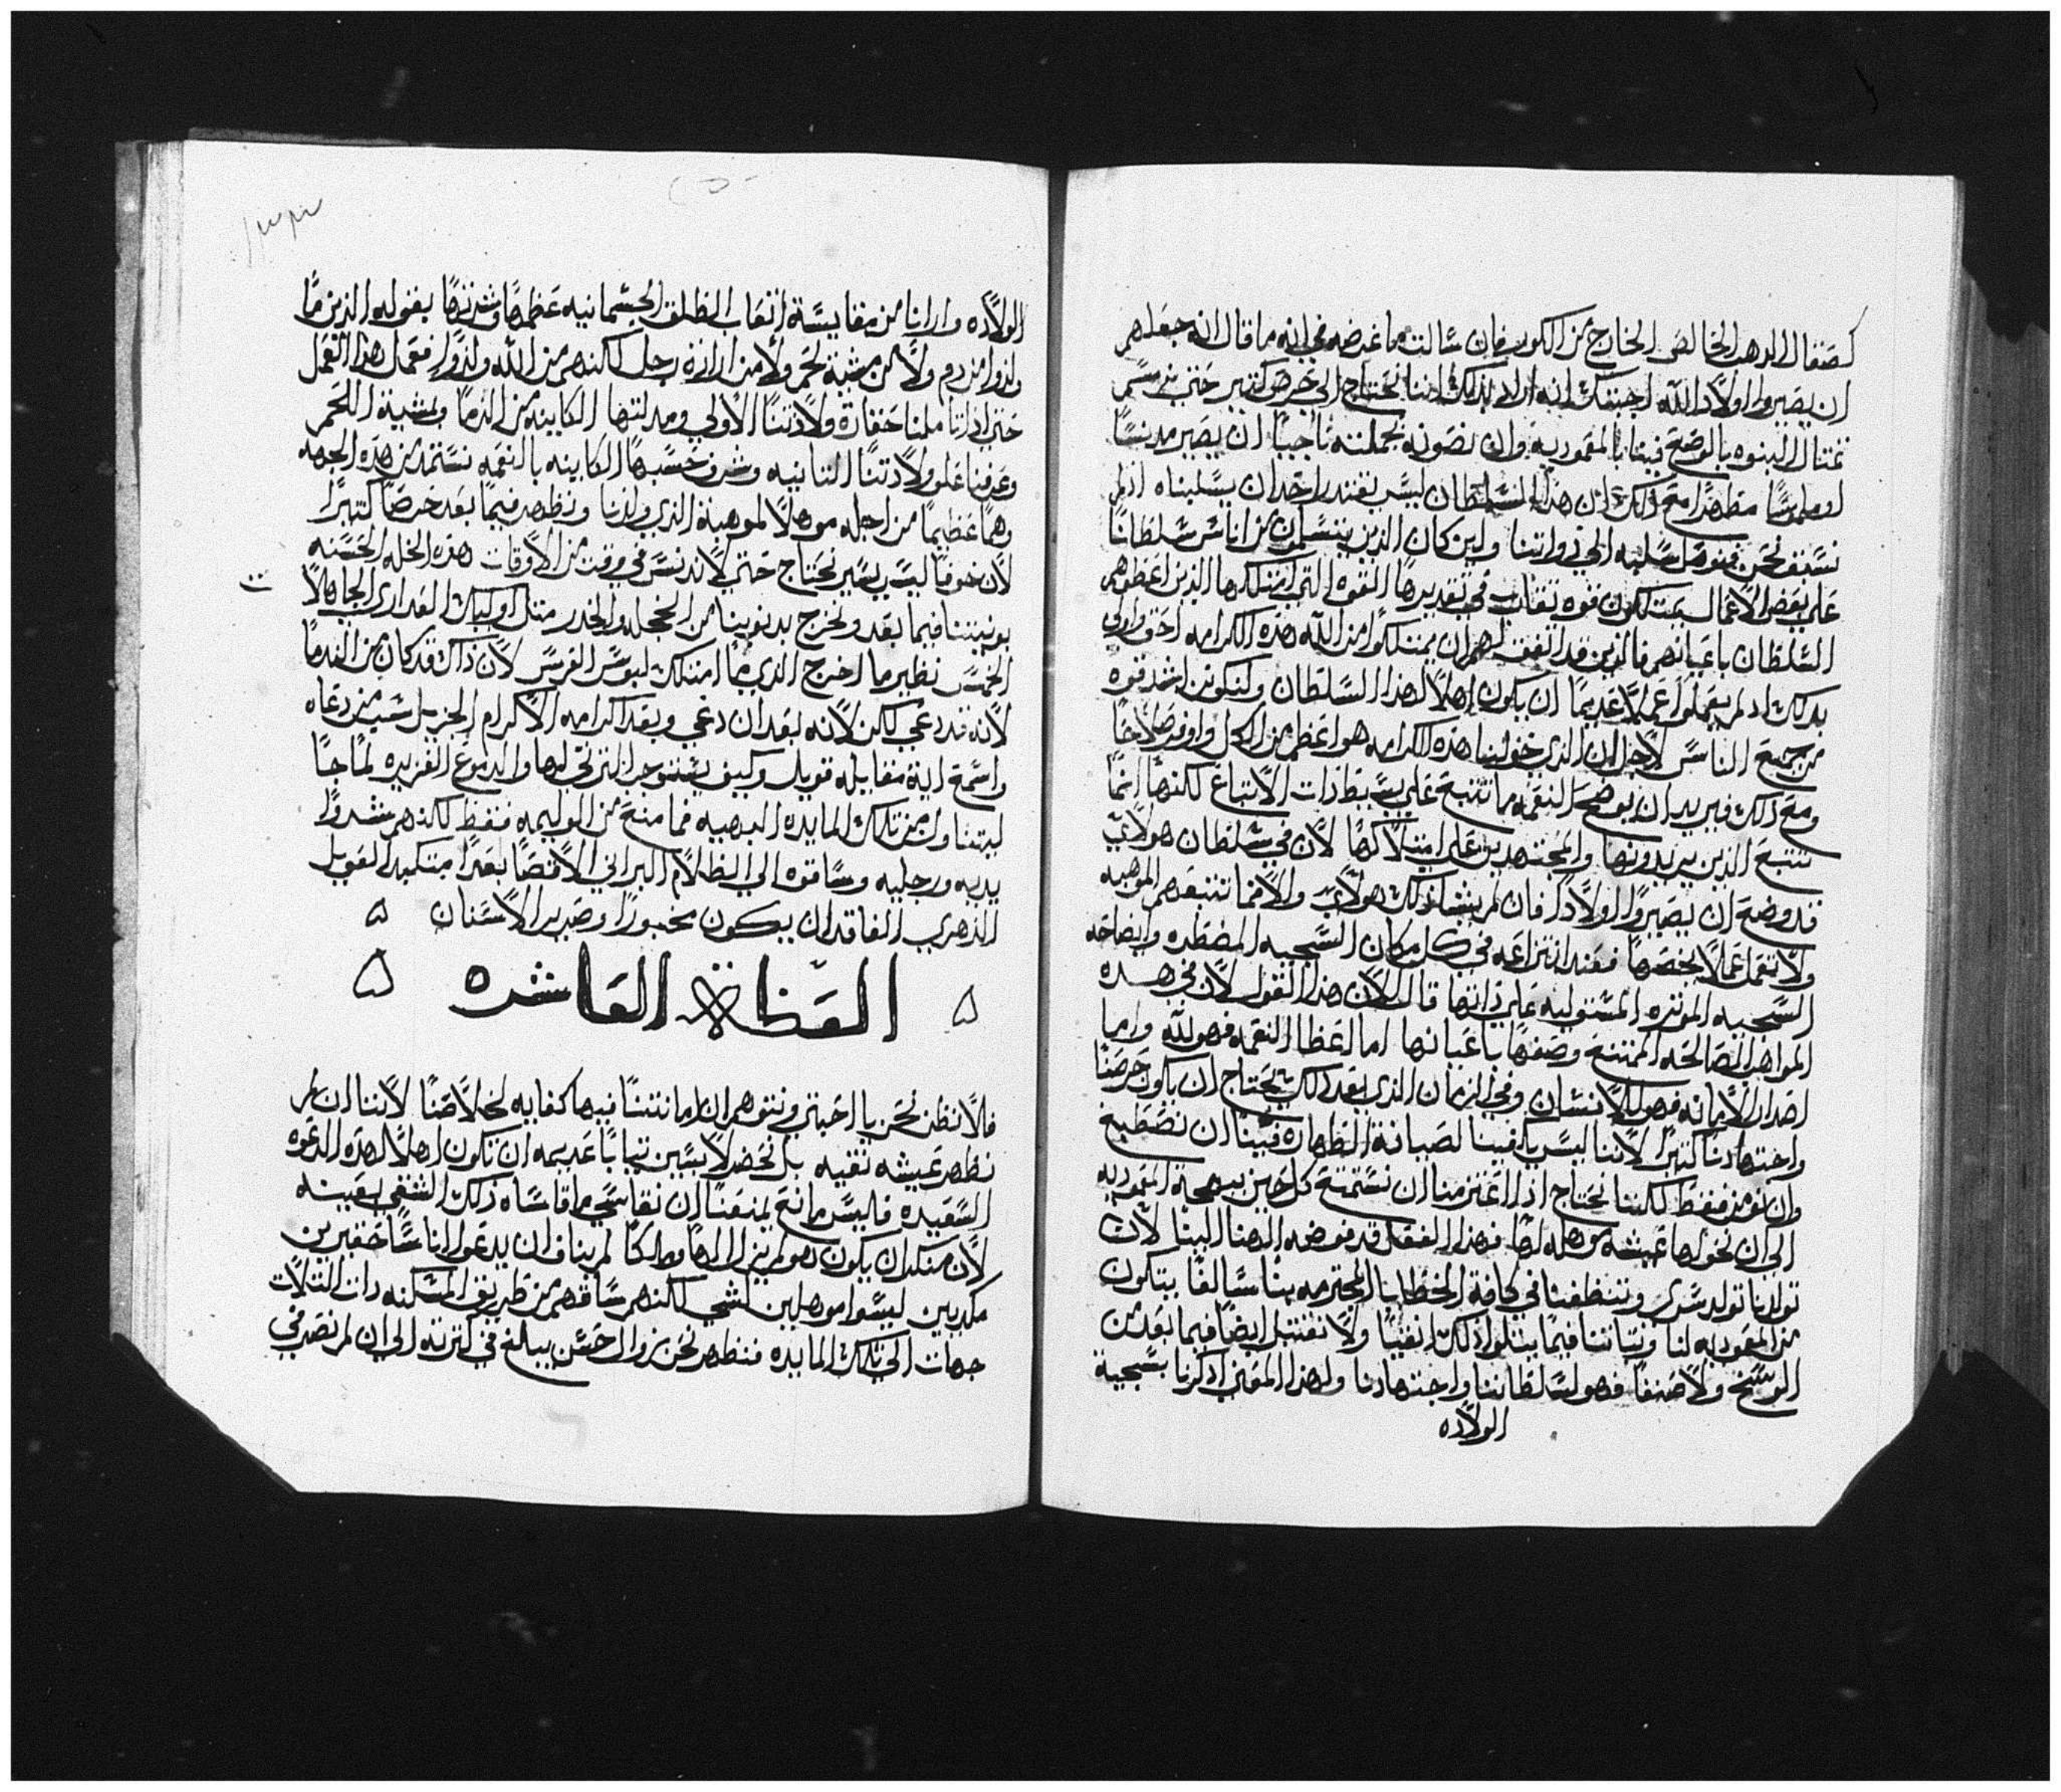 كصقال الدهب الخالص الخارج من الكور فان سالت ما غرضه في انه ما قال انه جعلهم
ان يصيروا اولاد الله اجبتك انه اراد بذلك اننا نحتاج الي حرص كتير حتي نرسم
تمتال البنوه بالوضع فينا بالمعموديه وان نصونه بجملته ناجيا ان يصير مدنسا
او ملموسا مظهرا مع ذلك ان هذا السلطان ليس يقتدر احد ان يسلبناه اذ لم
نسبق نحن فنوصل سلبه الي ذواتنا ولين كان الذين يتسلمون من اناس سلطانا
علي بعض الاعمال يمتلكون قوه تقارب في تقديرها القوه التي امتلكها الذين اعطوهم
السلطان باعيانهم فالذين قد اتفق لهم ان يمتلكوا من الله هذه الكرامه احق واولي
بذلك اذ لم يعملوا عملا عديما ان يكون اهلا لهذا السلطان ولنكونن اشد قوه
من جميع الناس لاجل ان الذي خولنا هذه الكرامه هو اعظم من الكل واوفر صلاحا
ومع ذلك فيريد ان يوضح النعمه ما تتبع علي بسيطات الاتباع لكنها انما
تتبع الذين يريدونها والمجتهدين علي امتلاكها لان في سلطان هولاي
قد وضع ان يصيروا اولادا فان لم يشا ذلك هولاي والا فما تتبعهم الموهبه
ولا تعمل عملا يخصها فعند انتزاعه في كل مكان السجيه المضطره وايضاحه
السجيه الموتره المستوليه علي ذاتها قال الان هذا القول لان في هذه
المواهب الصالحه الممتنع وصفها باعيانها اما اعطا النعمه فهو لله واما
اصدار الايمانه فهو للانسان وفي الزمان الذي بعد ذلك يحتاج ان يكون حرصنا
واجتهادنا كتيرا لاننا ليس يكفينا لصيانة الطهاره فينا ان نصطبغ
وان نومن فقط لكننا نحتاج اذا اعتزمنا ان نستمتع كل حين ببهجة المعموديه
الي ان نخولها عيشه موهله لها فهذا الفعل قد فوضه الهنا الينا لان
تولدنا تولد سري وتنظفنا في كافة الخطايا المجترمه منا سالفا يتكون
من المعموديه لنا وتباتنا فيما يتلو ذلك انقيا ولا نقتبل ايضا فيما بعد من
الوسخ ولا صنفا فهو لسلطاننا واجتهادنا ولهذا المعني اذكرنا بسجية
الولاده
الولاده وارانا من مقايسة اتعاب الطلق الجسمانيه عظمها وشرفها بقوله الذين ما
ولدوا من دم ولا من مشية لحم ولا من ارادة رجل لكنهم من الله ولدوا فعمل هذا العمل
حتي اذا تاملنا حقارة ولادتنا الاولي ومذلتها الكاينه من الدما ومشية اللحم
وعرفنا علو ولادتنا التانيه وشرف حسبها الكاينه بالنعمه نستمد من هذه الجهه
وهما عظيما من اجله موهلا لموهبة الذي ولدنا ونظهر فيما بعد حرصا كتيرا
لان خوفا ليس يسير نحتاج حتي لا ندنس في وقت من الاوقات هذه الحله الحسنه
بونيتنا فيما بعد ونخرج بدنوبنا من الحجله والخدر متل اوليك العداري الجاهلات
الخمس نظير ما اخرج الذي ما امتلك لبوس العرس لان ذاك قد كان من الندما
لانه قد دعي لكن لانه بعد ان دعي وبعد اكرامه الاكرام الجزيل شتم من دعاه
واسمع اية مقابله قوبل وكيف يستوجب الترتي لها والدموع الغزيره لما جا
ليتناول من تلك المايده البهيه فما منع من الوليمه فقط لكنهم شدوا
يديه ورجليه وساقوه الي الظلام البراني الاقصا بعدا متكبدا العويل
الدهري الفاقد ان يكون مخبورا وصرير الاسنان
العظة العاشره
فلا نظن نحن يا احبتي ونتوهم ان امانتنا فيها كفايه لخلاصنا لاننا ان لم
نظهر عيشه نقيه بل نحضر لابسين تيابا عديمه ان تكون اهلا لهذه الدعوه
السعيده فليس مانع يمنعنا ان نقاسي ما قاساه ذلك الشقي بعينه
لان منكرا ان يكون هو لم يزل الها وملكا لم يناف ان يدعو اناسا حقيرين
مكديين ليسوا موهلين لشي لكنهم ساقهم من طريق المسكنه ذات التلات
جهات الي تلك المايده فنظهر نحن بزوال حسن يبلغ في كترته الي ان لم نصر في